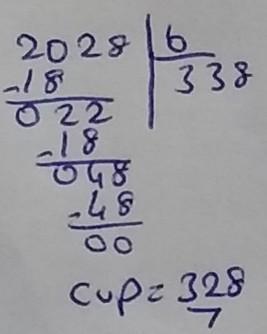 2028 6
-18 338
022
-18
048
-48
00
cup = 328
7